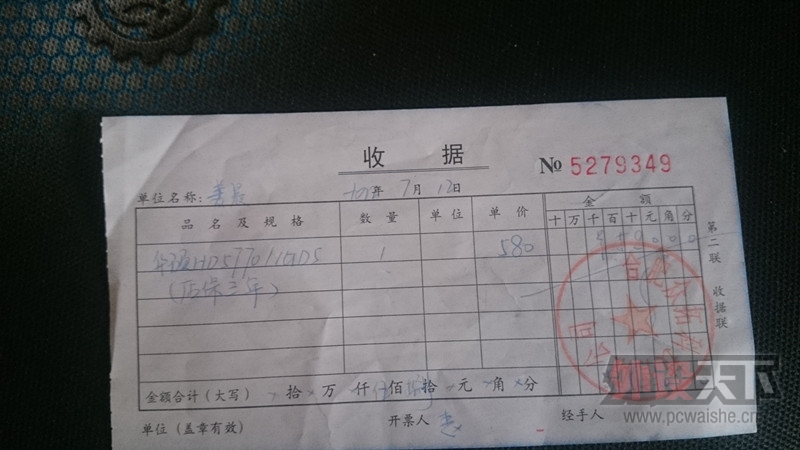 收据
№ 5279349
单位名称:
年 7 月 12 日
品名及规格 数量 单位 单价 金额
十 万 千 百 十 元 角 分
HD5770/1GD5 1 580
(店保三年)
金额合计(大写) 拾 万 仟 佰 拾 元 角 分
单位(盖章有效) 开票人 经手人
第二联 收据联
外设天下
www.pcwaishe.cn